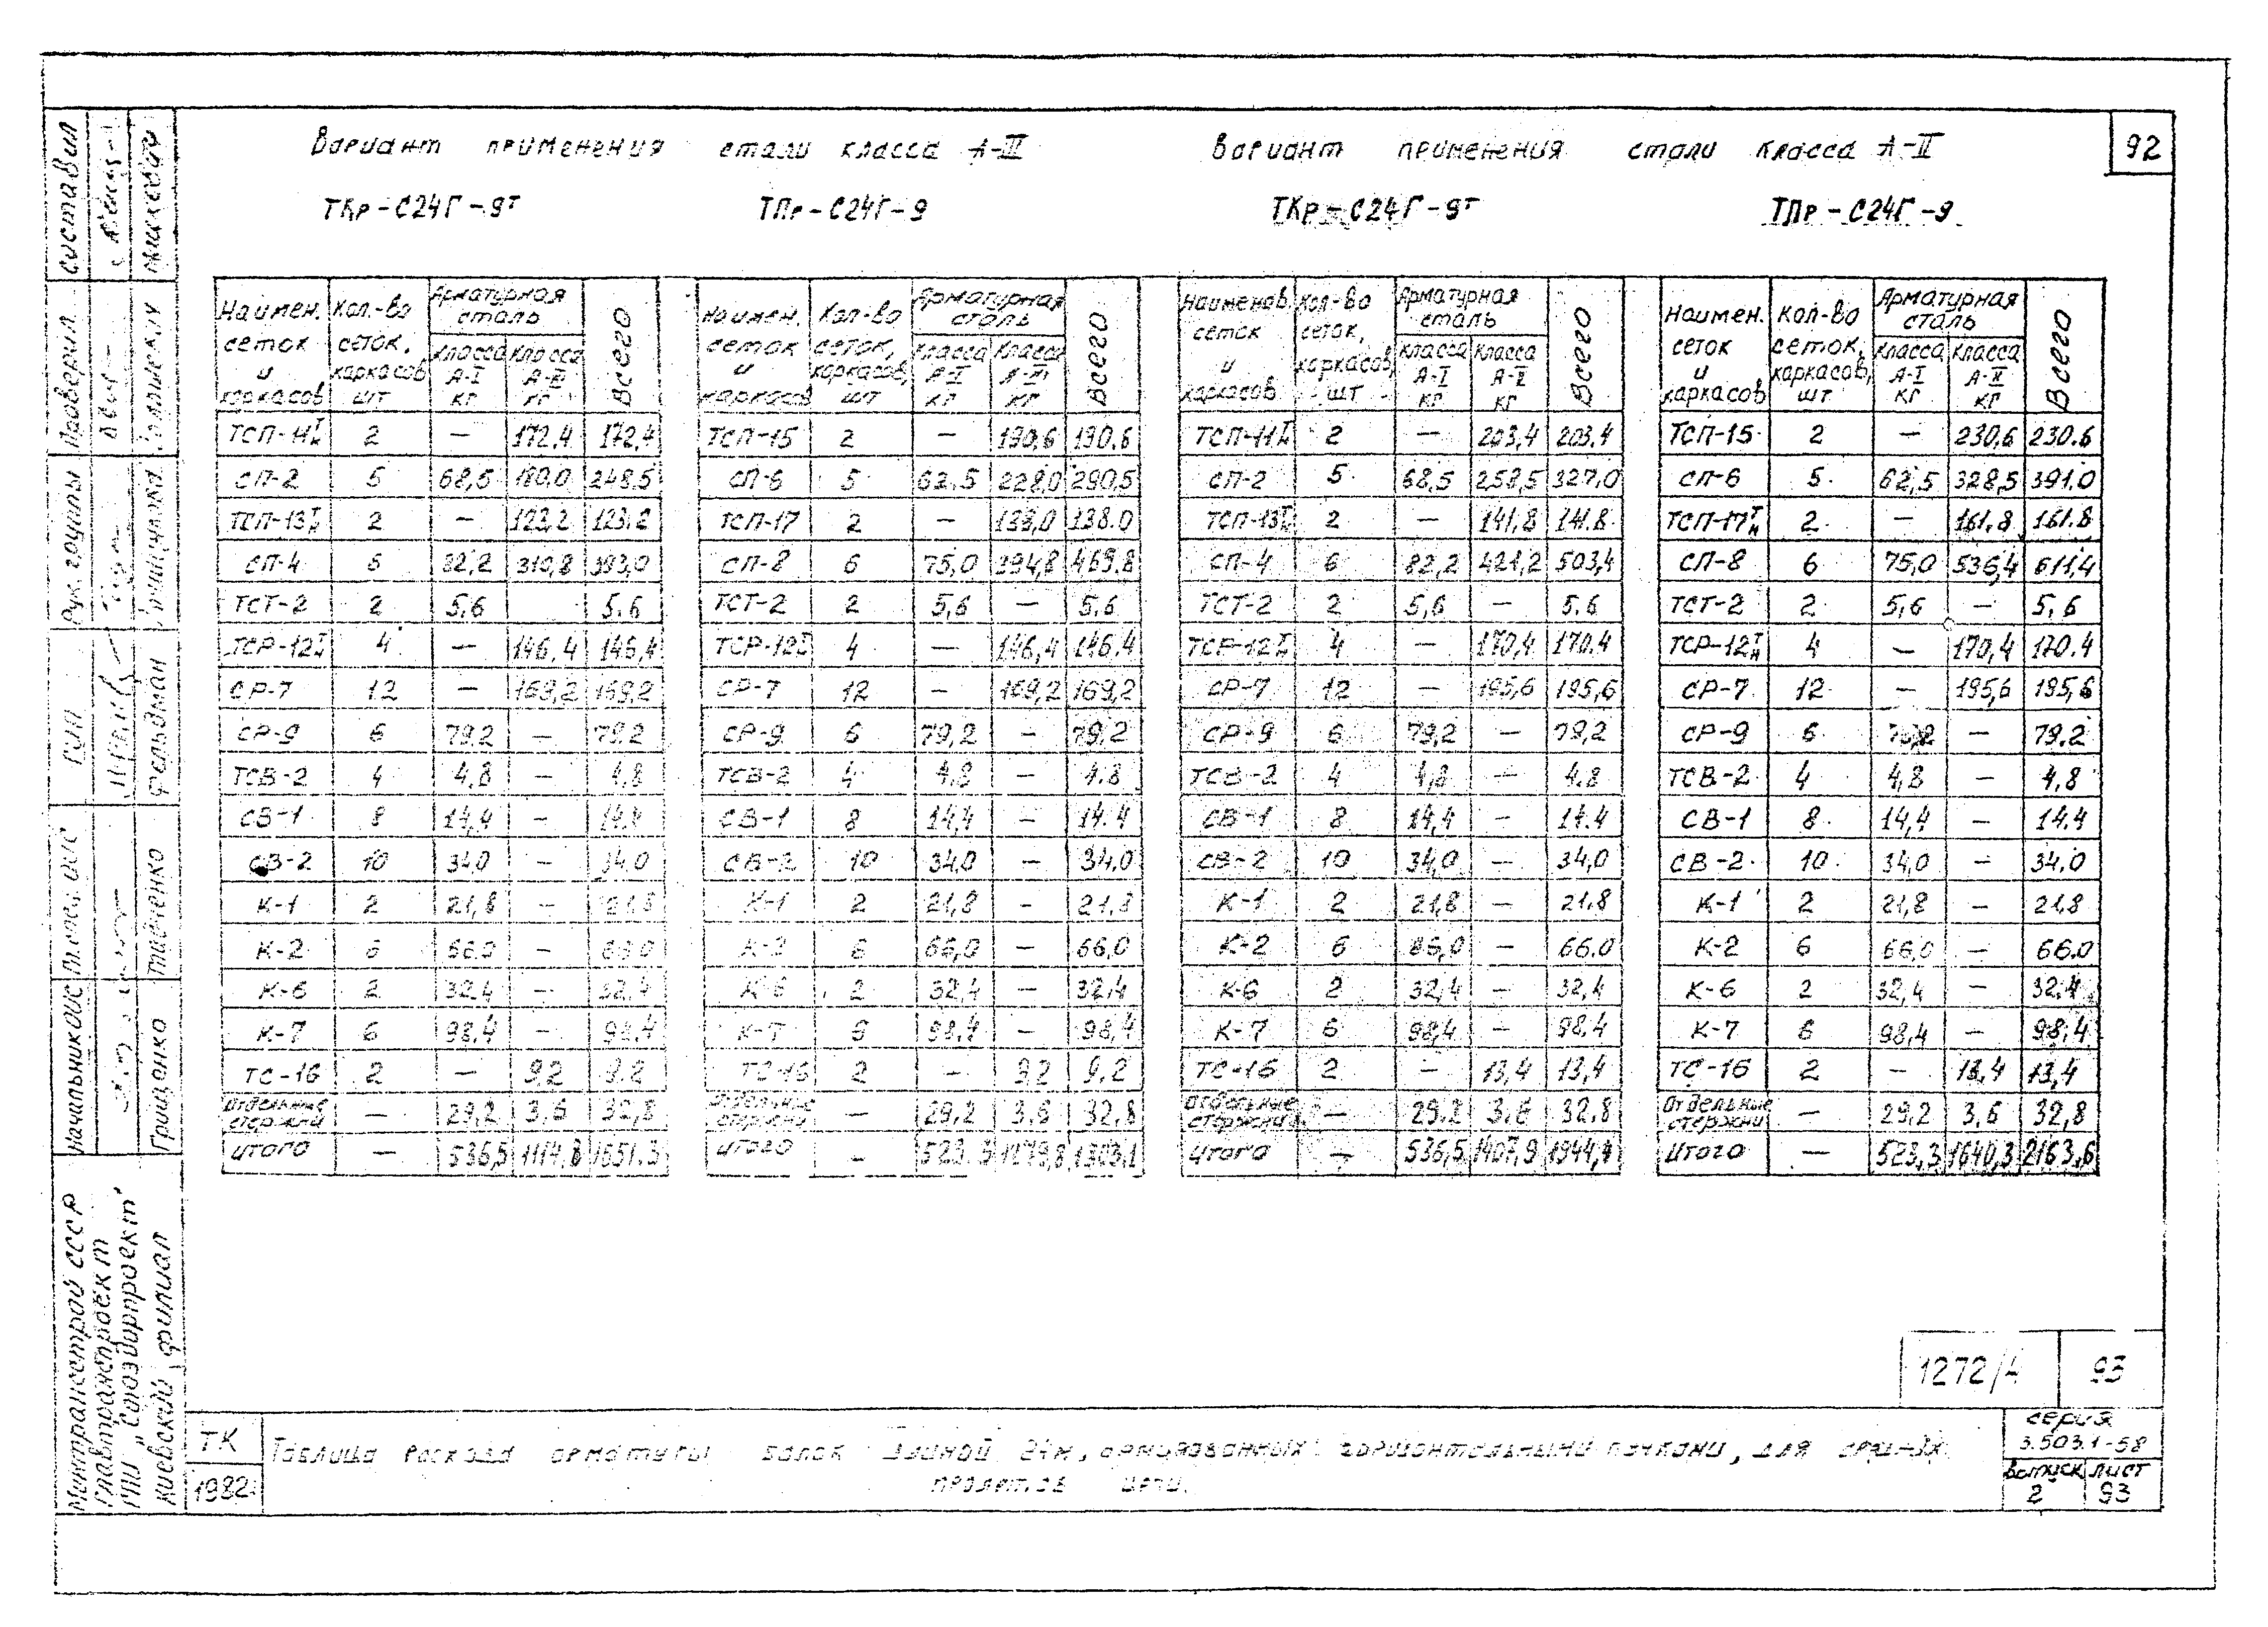 92
Вариант применения стали класса А-III
Вариант применения стали класса А-II
ТКр-С24Г-9т
ТПр-С24Г-9
ТКр-С24Г-9т
ТПр-С24Г-9
Наимен. сеток и каркасов | Кол.-во сеток, каркасов, шт | Арматурная сталь | класса А-I кг | класса А-III кг | Всего
ТСП-11 т н | 2 | — | 172,4 | 172,4
СП-2 | 5 | 68,5 | 180,0 | 248,5
ТСП-13 т н | 2 | — | 123,2 | 123,2
СП-4 | 6 | 82,2 | 310,8 | 393,0
ТСТ-2 | 2 | 5,6 | 5,6
ТСР-12 т н | 4 | — | 146,4 | 146,4
СР-7 | 12 | — | 169,2 | 169,2
СР-9 | 6 | 79,2 | — | 79,2
ТСВ-2 | 4 | 4,8 | — | 4,8
СВ-1 | 8 | 14,4 | — | 14,4
СВ-2 | 10 | 34,0 | — | 34,0
К-1 | 2 | 21,8 | — | 21,8
К-2 | 6 | 66,0 | — | 66,0
К-6 | 2 | 32,4 | — | 32,4
К-7 | 6 | 98,4 | — | 98,4
ТС-16 | 2 | — | 9,2 | 9,2
Отдельные стержни | — | 29,2 | 3,6 | 32,8
Итого | — | 536,5 | 1114,8 | 1651,3
Наимен. сеток и каркасов | Кол-во сеток, каркасов, шт | Арматурная сталь | класса А-I кг | класса А-III кг | Всего
ТСП-15 | 2 | — | 190,6 | 190,6
СП-6 | 5 | 62,5 | 228,0 | 290,5
ТСП-17 | 2 | — | 138,0 | 138,0
СП-8 | 6 | 75,0 | 394,8 | 469,8
ТСТ-2 | 2 | 5,6 | — | 5,6
ТСР-12 т н | 4 | — | 146,4 | 146,4
СР-7 | 12 | — | 169,2 | 169,2
СР-9 | 6 | 79,2 | — | 79,2
ТСВ-2 | 4 | 4,8 | — | 4,8
СВ-1 | 8 | 14,4 | — | 14,4
СВ-2 | 10 | 34,0 | — | 34,0
К-1 | 2 | 21,8 | — | 21,8
К-2 | 6 | 66,0 | — | 66,0
К-6 | 2 | 32,4 | — | 32,4
К-7 | 6 | 98,4 | — | 98,4
ТС-16 | 2 | — | 9,2 | 9,2
Отдельные стержни | — | 29,2 | 3,6 | 32,8
Итого | — | 523,3 | 1279,8 | 1803,1
Наименов. сеток и каркасов | Кол-во сеток, каркасов, шт | Арматурная сталь | класса А-I кг | класса А-II кг | Всего
ТСП-11 т н | 2 | — | 203,4 | 203,4
СП-2 | 5 | 68,5 | 258,5 | 327,0
ТСП-13 т н | 2 | — | 141,8 | 141,8
СП-4 | 6 | 82,2 | 421,2 | 503,4
ТСТ-2 | 2 | 5,6 | — | 5,6
ТСР-12 т н | 4 | — | 170,4 | 170,4
СР-7 | 12 | — | 195,6 | 195,6
СР-9 | 6 | 79,2 | — | 79,2
ТСВ-2 | 4 | 4,8 | — | 4,8
СВ-1 | 8 | 14,4 | — | 14,4
СВ-2 | 10 | 34,0 | — | 34,0
К-1 | 2 | 21,8 | — | 21,8
К-2 | 6 | 66,0 | — | 66,0
К-6 | 2 | 32,4 | — | 32,4
К-7 | 6 | 98,4 | — | 98,4
ТС-16 | 2 | — | 13,4 | 13,4
Отдельные стержни | — | 29,2 | 3,6 | 32,8
Итого | — | 536,5 | 1407,9 | 1944,4
Наимен. сеток и каркасов | Кол-во сеток, каркасов, шт | Арматурная сталь | класса А-I кг | класса А-II кг | Всего
ТСП-15 | 2 | — | 230,6 | 230,6
СП-6 | 5 | 62,5 | 328,5 | 391,0
ТСП-17 т н | 2 | — | 161,8 | 161,8
СП-8 | 6 | 75,0 | 536,4 | 611,4
ТСТ-2 | 2 | 5,6 | — | 5,6
ТСР-12 т н | 4 | — | 170,4 | 170,4
СР-7 | 12 | — | 195,6 | 195,6
СР-9 | 6 | 79,2 | — | 79,2
ТСВ-2 | 4 | 4,8 | — | 4,8
СВ-1 | 8 | 14,4 | — | 14,4
СВ-2 | 10 | 34,0 | — | 34,0
К-1 | 2 | 21,8 | — | 21,8
К-2 | 6 | 66,0 | — | 66,0
К-6 | 2 | 32,4 | — | 32,4
К-7 | 6 | 98,4 | — | 98,4
ТС-16 | 2 | — | 13,4 | 13,4
Отдельные стержни | — | 29,2 | 3,6 | 32,8
Итого | — | 523,3 | 1640,3 | 2163,6
1272/4 93
ТК
1982
Таблица расхода арматуры балок длиной 24м, армированных горизонтальными пучками, для средних
пролетов цепи.
серия
3.503.1-58
выпуск лист
2 93
Минтрансстрой СССР
Главтранспроект
ГПИ „Союздорпроект"
Киевский филиал
Начальник ОИС Грищенко
Гл. спец. ОИС Ткаченко
ГИП Фельдман
Рук. группы
Проверил
Составил